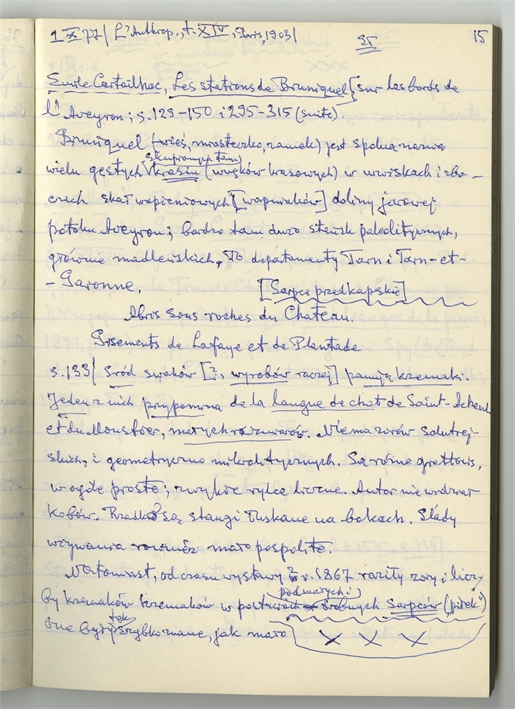 1 X 77/ L'Anthrop., t. XIV, Paris, 1903/
35
15
Emile Cartailhac, Les stations de Bruniquel sur les bords de
l'Aveyron; s. 129-150 i 295-315 (suite).
Bruniquel (wieś, miasteczko, zamek) jest spólną nazwą
wielu gęstych skupionych tam
(wąsków krasowych) w urwiskach i zbo-
czach skał wapieniowych [wapniaków] doliny jarowej
potoku Aveyron; bardzo tam dużo stanowisk paleolitycznych,
głównie madleńskich. To departamenty Tarn i Tarn-et-
-Garonne. [Sarpce przedkapskie]
Abris sous roches du Chateau.
Gisements de Lafaye et de Plantade
s. 133/ Śród [?, wyrobów raczej] panują krzemaki.
Jeden z nich przypomina de la langue de chat de Saint-Acheul
et du Moustier, małych rozmiarów. Niema zorów solutrej-
skich, i geometryczno mikrolitycznych. Są różne grattoirs,
w ogóle proste; zwykłe rylce liczne. Autor nie widział
Rzadko są stangi łuskane na bokach. Ślady
używania również mało pospolite.
Natomiast, od czasu wystawy w 1867 raziły zory i licz-
by krzemaków krzemaków w postaciach podmałych i drobnych sarpców ("piłek")
One były tak szybko znane, jak mało
X X X